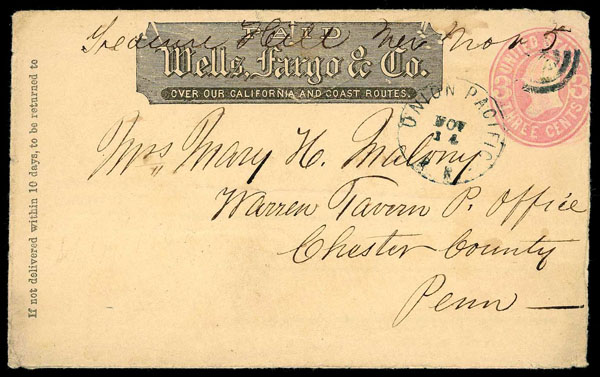 PAID
Treasure Hill Nev Nov 5
Wells, Fargo & Co.
OVER OUR CALIFORNIA AND COAST ROUTES.
UNITED STATES
THREE CENTS
3
3
UNION PACIFIC
NOV
14
Mrs Mary H. Malony
Warren Tavern P. Office
Chester County
Penn
If not delivered within 10 days, to be returned to